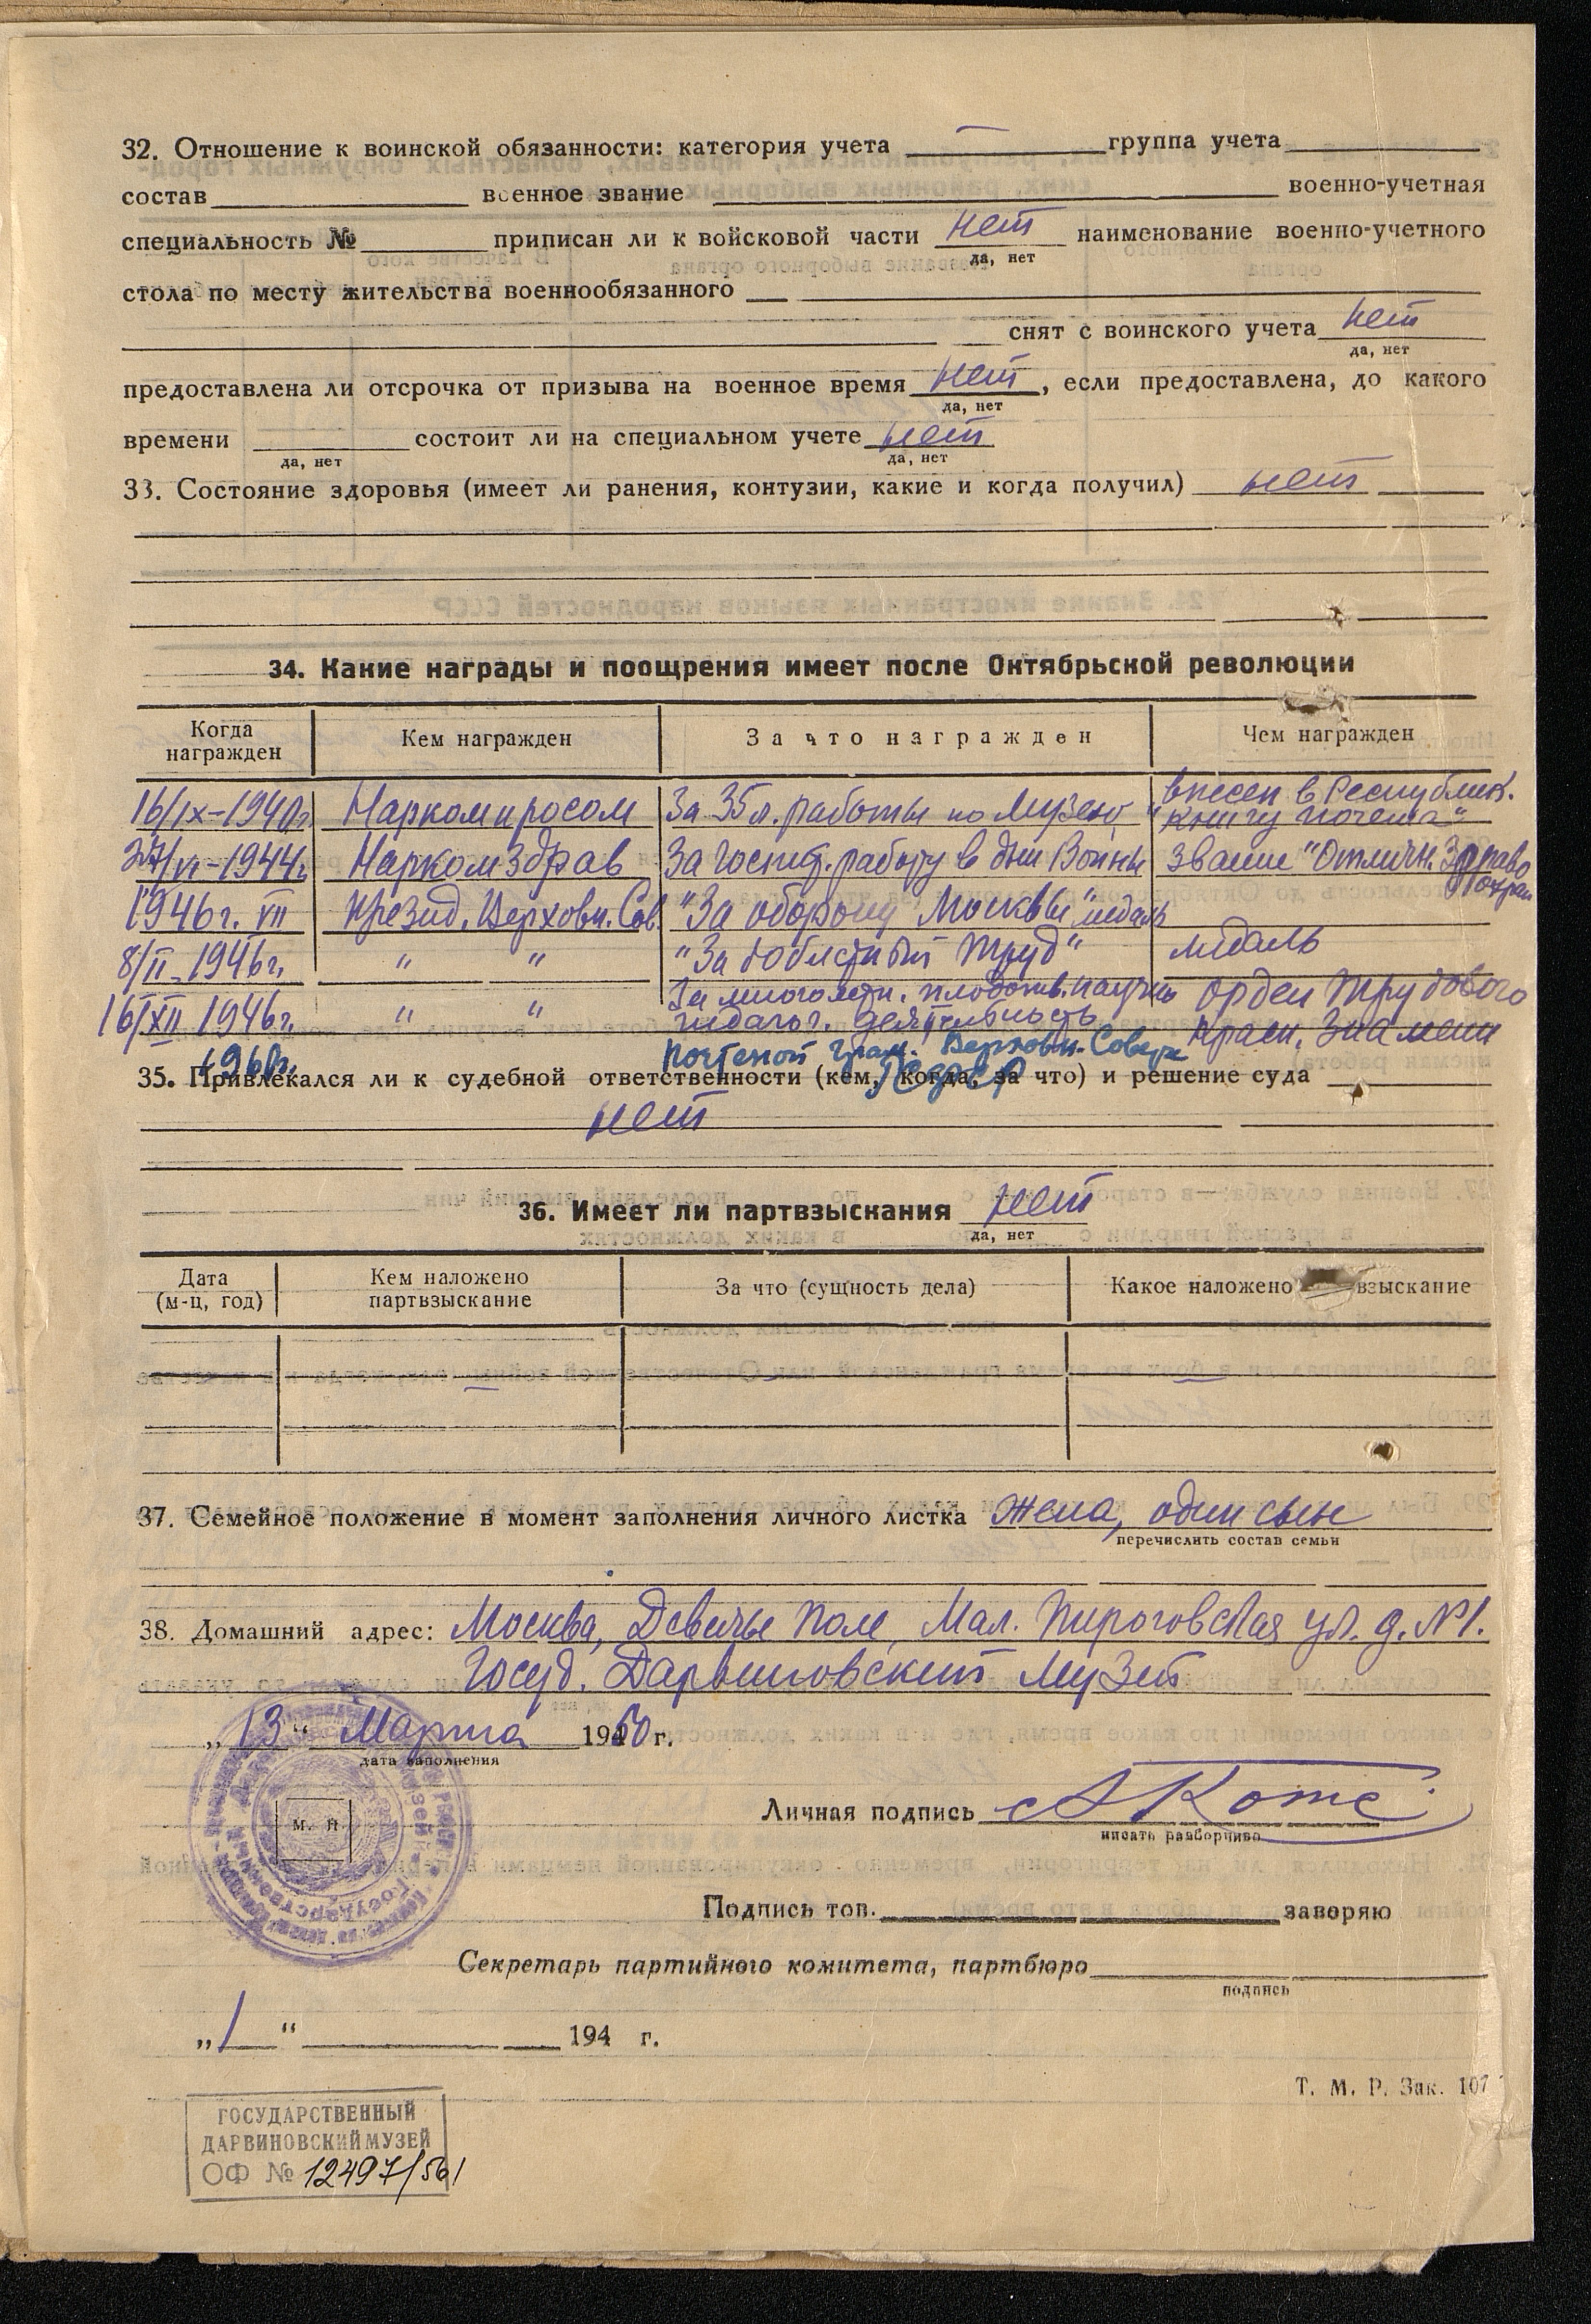 32. Отношение к воинской обязанности: категория учета — группа учета
состав военное звание военно-учетная
специальность № приписан ли к войсковой части нет наименование военно-учетного
да, нет
стола по месту жительства военнообязанного
снят с воинского учета нет
да, нет
предоставлена ли отсрочка от призыва на военное время нет, если предоставлена, до какого
да, нет
времени состоит ли на специальном учете нет
да, нет да, нет
33. Состояние здоровья (имеет ли ранения, контузии, какие и когда получил) нет
34. Какие награды и поощрения имеет после Октябрьской революции
Когда награжден Кем награжден За что награжден Чем награжден
16/IX-1940г. Наркомпросом За 35 л. работы по Музею внесен в Республик. "книгу почета"
27/VI-1944г. Наркомздрав За госпит. работу в дни Войны звание "Отличн. Здравоохран
1946г. VII Презид. Верховн. Сов. "За оборону Москвы" медаль
8/II-1946г. " " "За доблестный труд" медаль
16/XII 1946г. " " За многолетн. плодотв. научно педагог. деятельность Орден Трудового Красн. Знамени
1960г. Почетной грам. Верховн. Совета РСФСР
35. Привлекался ли к судебной ответственности (кем, когда, за что) и решение суда
нет
36. Имеет ли партвзыскания нет
да, нет
Дата (м-ц, год) Кем наложено партвзыскание За что (сущность дела) Какое наложено взыскание
37. Семейное положение в момент заполнения личного листка Жена, один сын
перечислить состав семьи
38. Домашний адрес: Москва, Девичье Поле, Мал. Пироговская ул. д. № 1.
Госуд. Дарвиновский Музей
„13“ Марта 1950 г.
дата заполнения
м. п.
Личная подпись А Котс
писать разборчиво
Подпись тов. заверяю
Секретарь партийного комитета, партбюро
подпись
„ “ 194 г.
Т. М. Р. Зак. 107
ГОСУДАРСТВЕННЫЙ
ДАРВИНОВСКИЙ МУЗЕЙ
ОФ № 12497/561